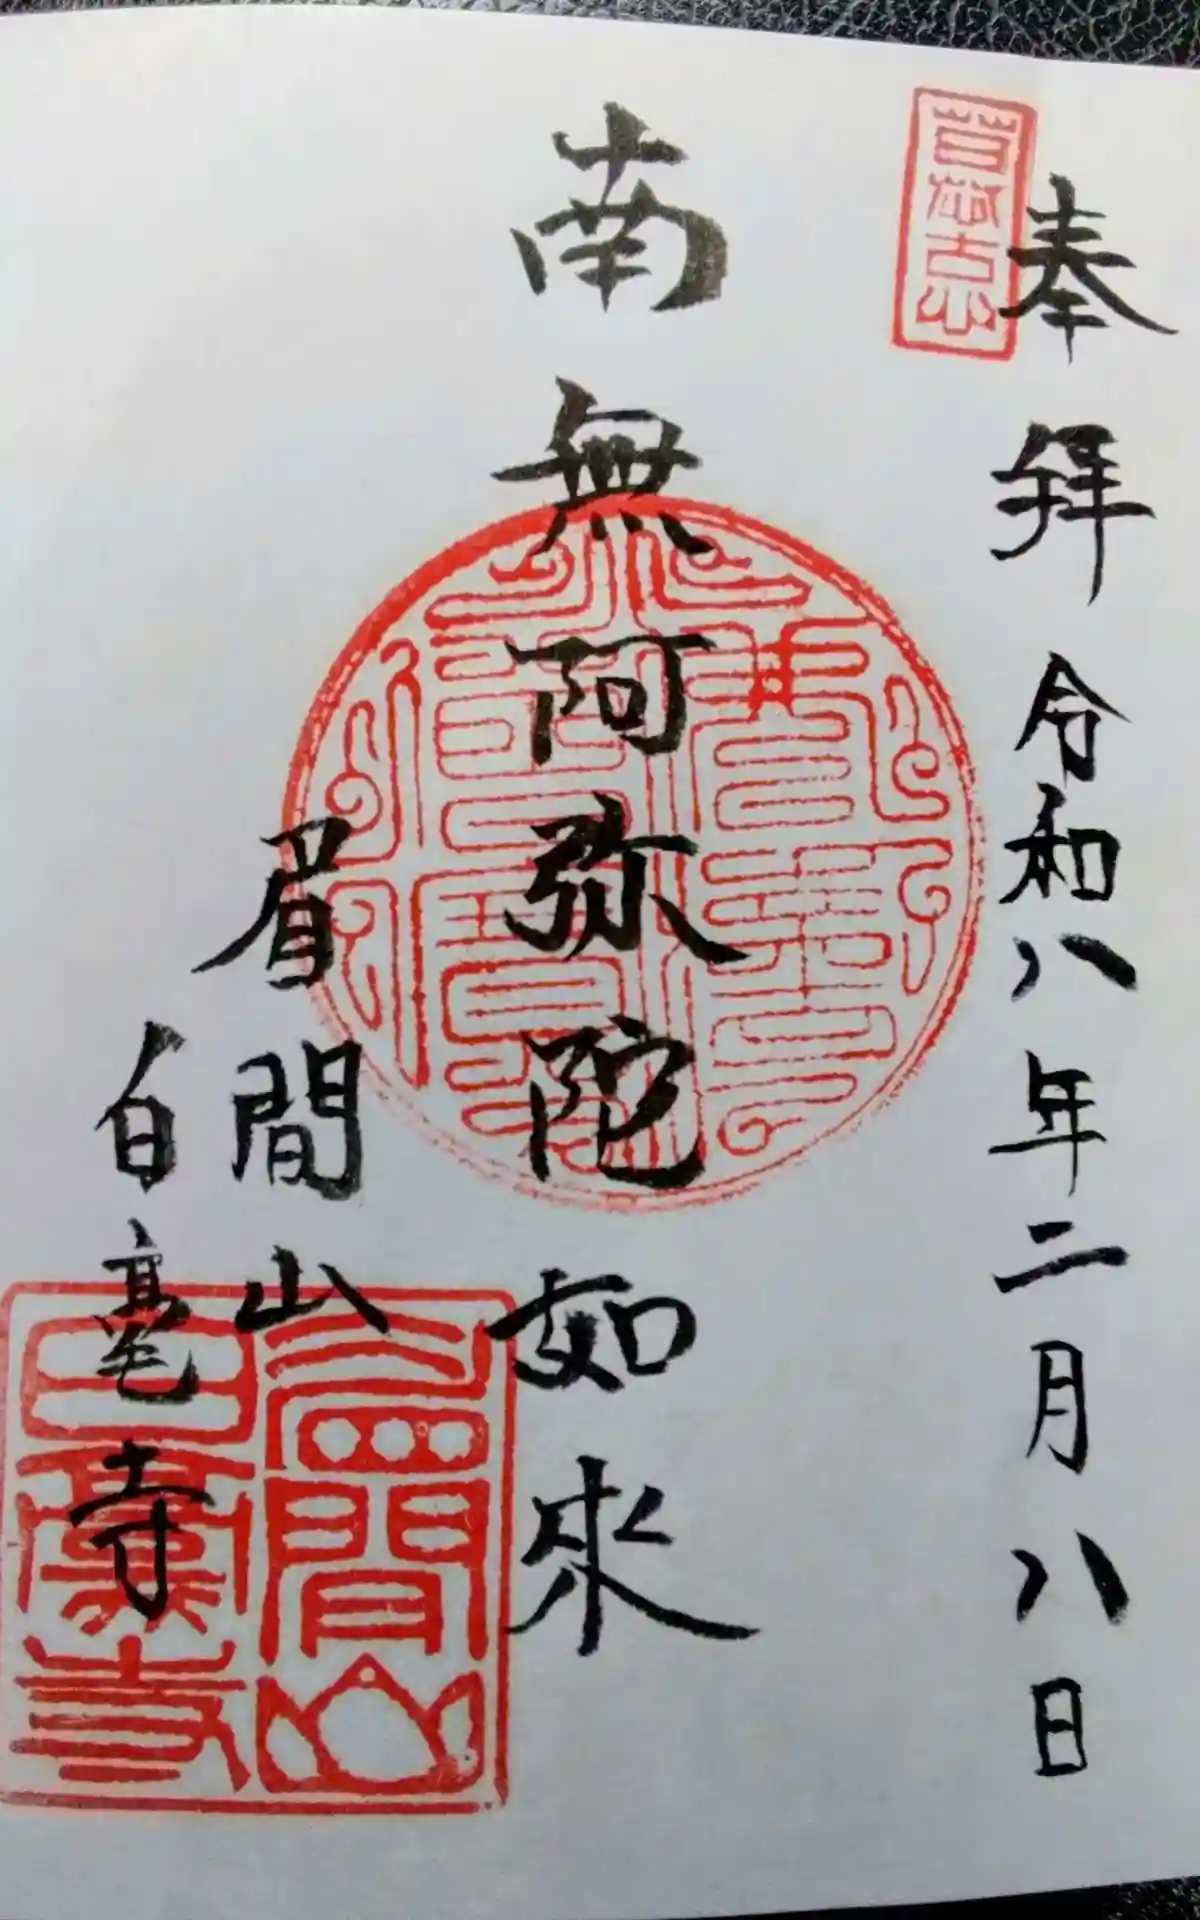 奉拜 令和八年二月八日
南無阿弥陀如來
眉間山
白毫寺
眉間山
白毫寺